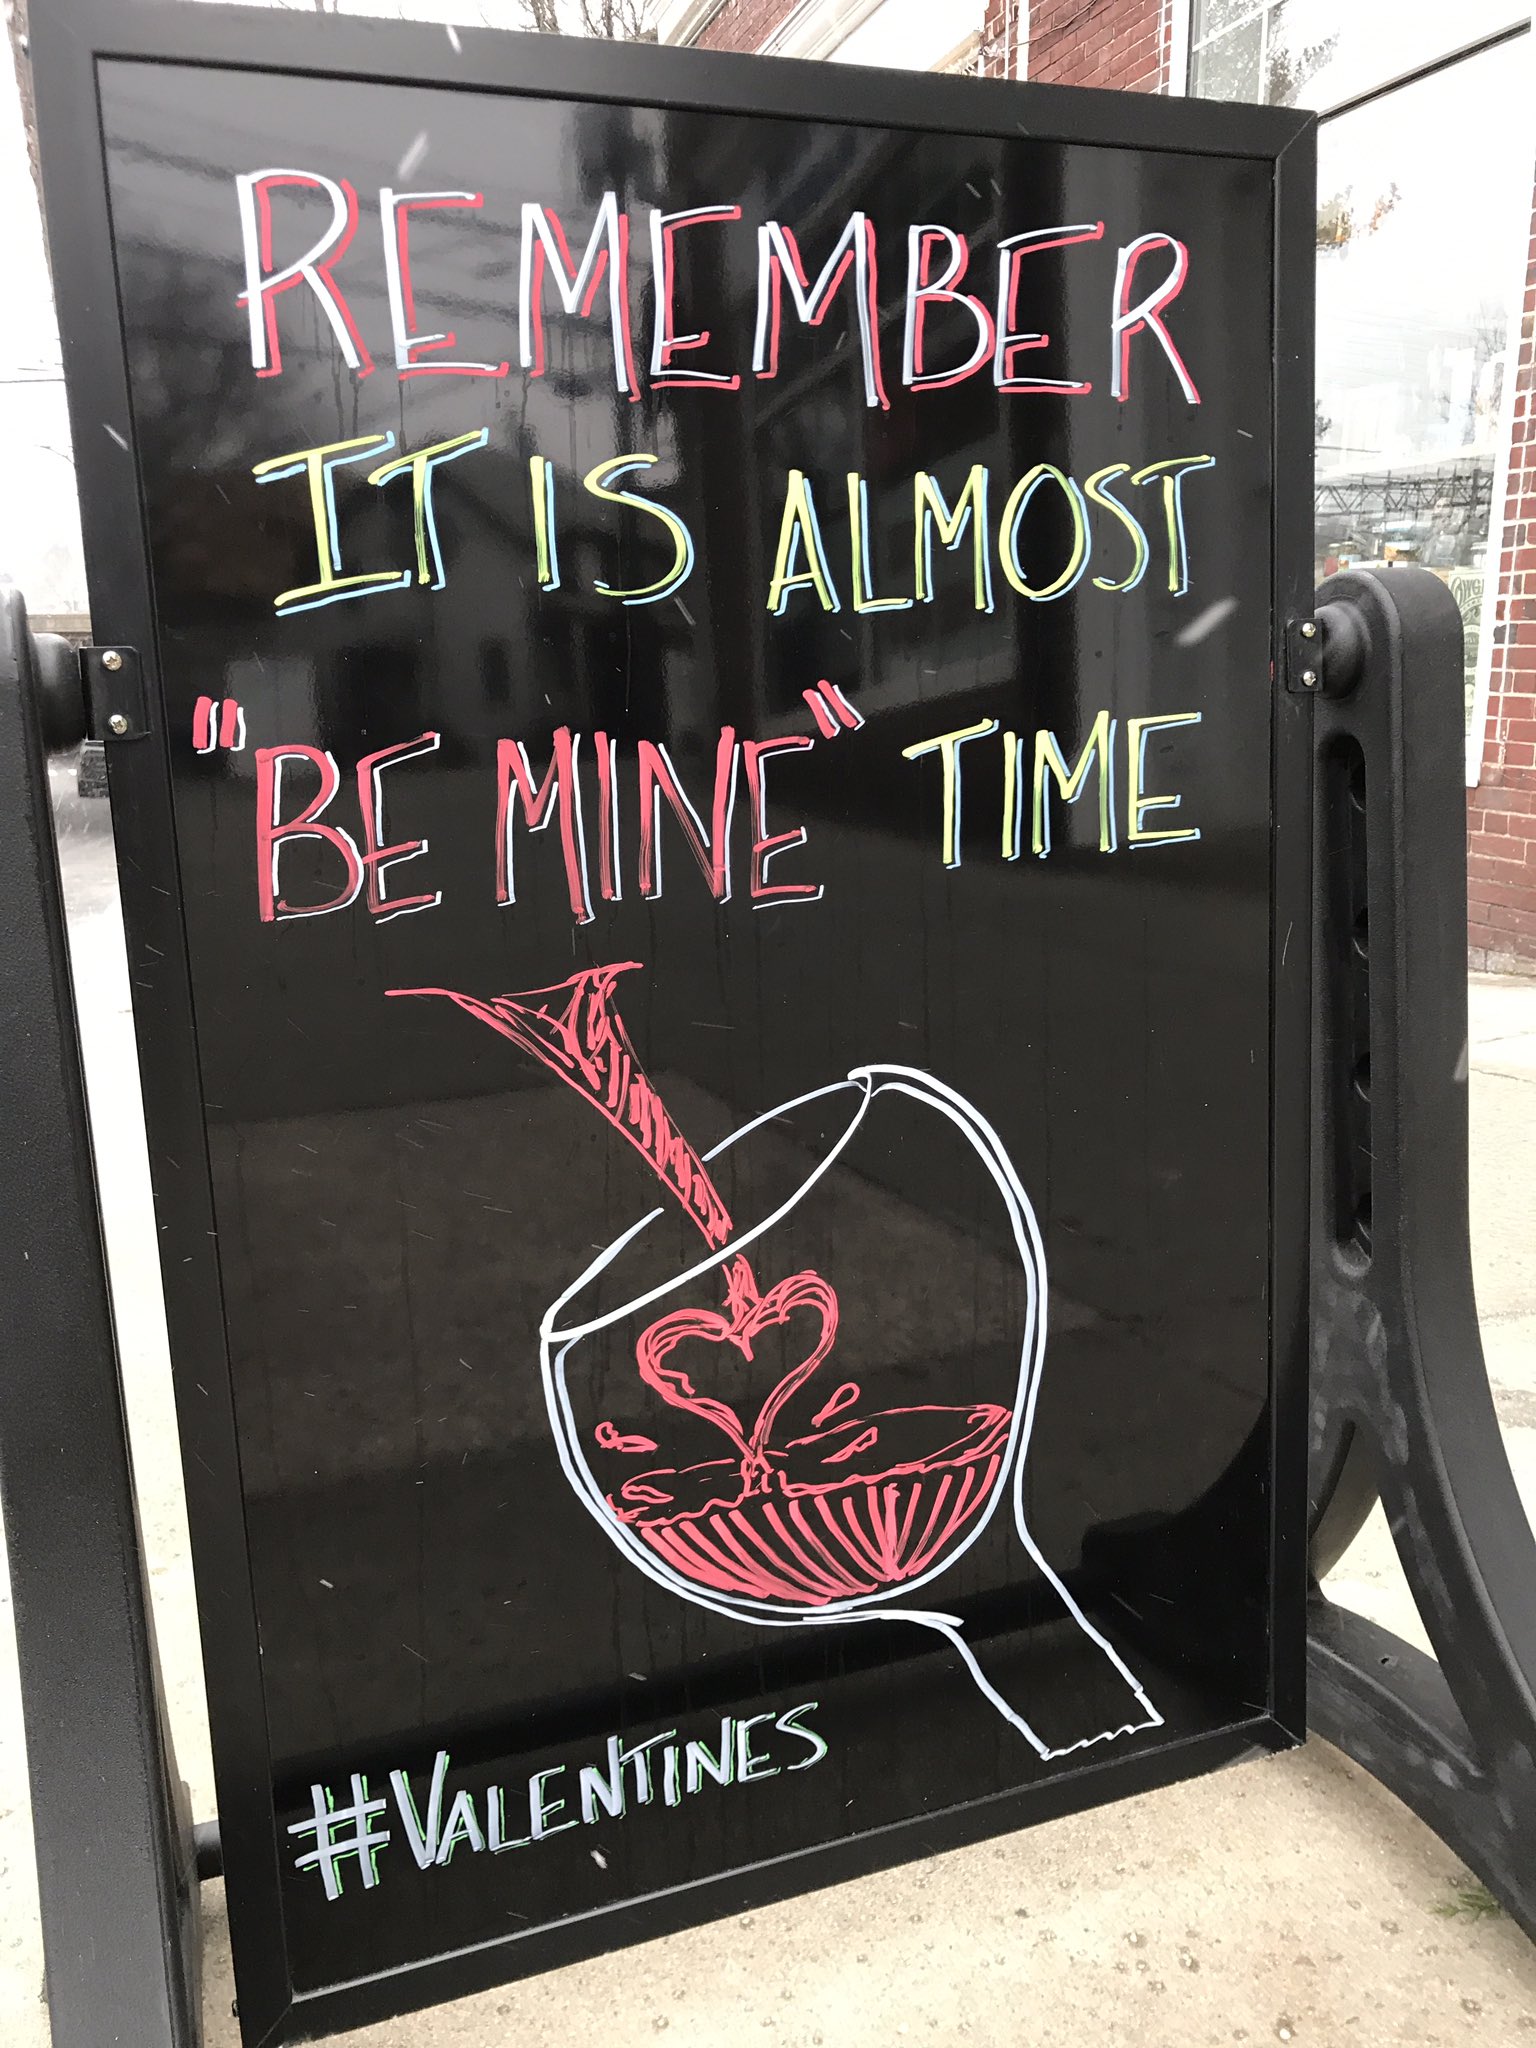 REMEMBER
IT IS ALMOST
"BE MINE" TIME
#VALENTINES